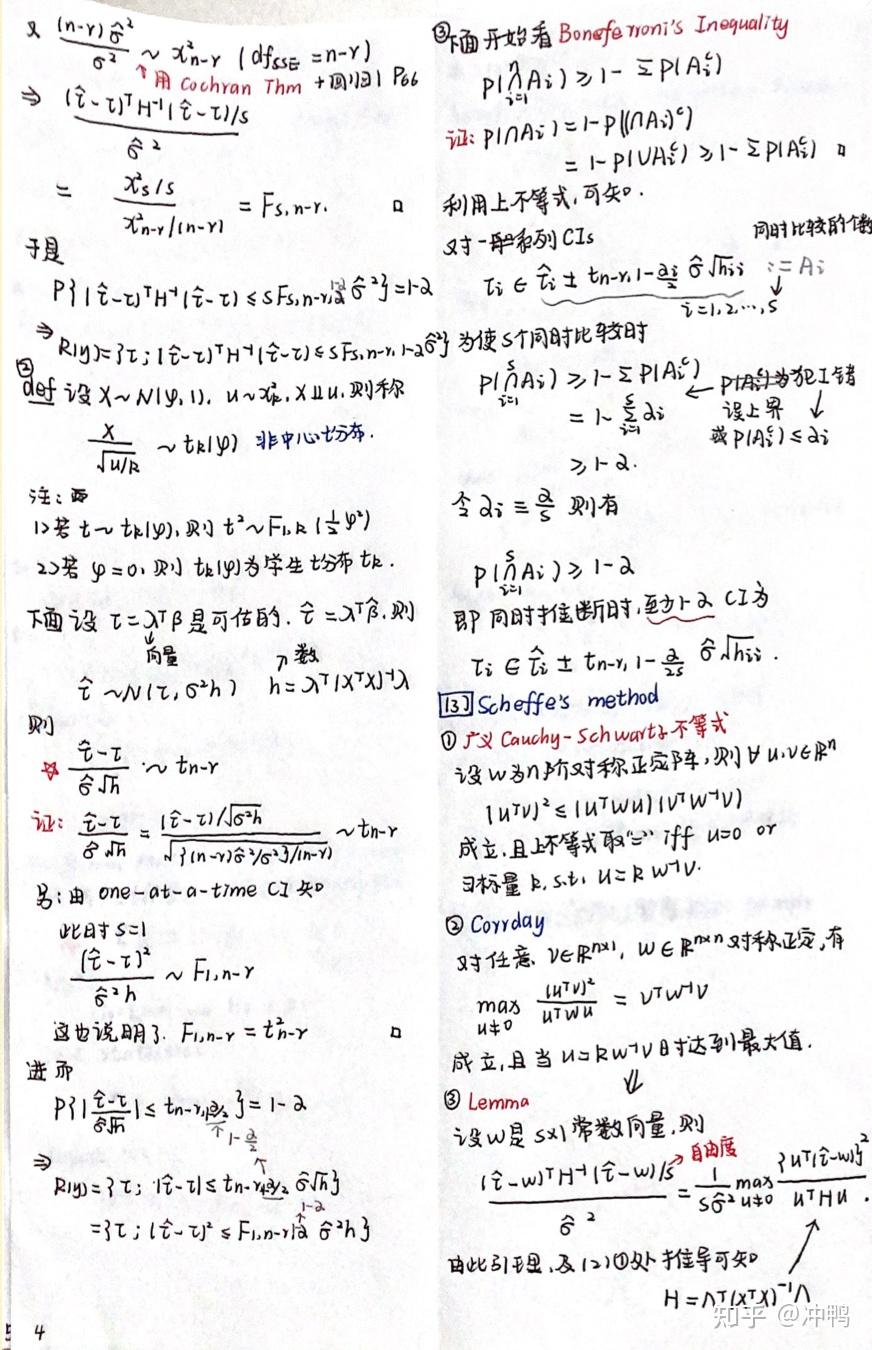 又 (n-r)σ̂²/σ² ~ χ²ₙ₋ᵣ (df_SSE = n-r)
↑用 Cochran Thm + 回归 P66
⇒ (τ̂-τ)ᵀH⁻¹(τ̂-τ)/s / σ̂²
= χ²ₛ/s / χ²ₙ₋ᵣ/(n-r) = F_{s,n-r}. □
于是
P{(τ̂-τ)ᵀH⁻¹(τ̂-τ) ≤ sF_{s,n-r,1-α} σ̂²} = 1-α
⇒ R(y) = {τ; (τ̂-τ)ᵀH⁻¹(τ̂-τ) ≤ sF_{s,n-r,1-α} σ̂²}
② def 设 X~N(φ,1), u~χ²ₖ, X⫫u, 则称
X/√(u/k) ~ tₖ(φ) 非中心t分布.
注:
1>若 t~tₖ(φ), 则 t²~F₁,ₖ(½φ²)
2>若 φ=0, 则 tₖ(φ)为学生t分布 tₖ.
下面设 τ=λᵀβ是可估的. τ̂=λᵀβ̂, 则
↓向量 ↗数
τ̂ ~ N(τ, σ²h) h=λᵀ(XᵀX)⁻¹λ
则
☆ (τ̂-τ)/(σ̂√h) ~ tₙ₋ᵣ
证: (τ̂-τ)/(σ̂√h) = (τ̂-τ)/√(σ²h) / √({(n-r)σ̂²/σ²}/(n-r)) ~ tₙ₋ᵣ
另: 由 one-at-a-time CI 知
此时 s=1
(τ̂-τ)²/(σ̂²h) ~ F₁,ₙ₋ᵣ
这也说明了. F₁,ₙ₋ᵣ = t²ₙ₋ᵣ □
进而
P{|(τ̂-τ)/(σ̂√h)| ≤ t_{n-r,1-α/2}} = 1-α
↑1-α/2
⇒ R(y) = {τ; |τ̂-τ| ≤ t_{n-r,1-α/2} σ̂√h}
1-α
= {τ; (τ̂-τ)² ≤ F_{1,n-r,1-α} σ̂²h}
4
③下面开始看 Boneferroni's Inequality
P(⋂ᵢ₌₁ⁿAᵢ) ≥ 1 - ΣP(Aᵢᶜ)
证: P(∩Aᵢ) = 1-P((∩Aᵢ)ᶜ)
= 1-P(∪Aᵢᶜ) ≥ 1-ΣP(Aᵢᶜ) □
利用上不等式, 可知.
对一系列 CIs
同时比较的个数
τᵢ ∈ τ̂ᵢ ± t_{n-r,1-αᵢ/2} σ̂√hᵢᵢ := Aᵢ
i=1,2,...,s
为使s个同时比较时
P(⋂ᵢ₌₁ˢAᵢ) ≥ 1-ΣP(Aᵢᶜ) ← P(Aᵢᶜ)为犯I错
= 1-Σᵢ₌₁ˢαᵢ 误上界
或P(Aᵢᶜ) ≤ αᵢ
≥ 1-α.
令 αᵢ ≡ α/s 则有
P(⋂ᵢ₌₁ˢAᵢ) ≥ 1-α
即同时推断时, 至少1-α CI为
τᵢ ∈ τ̂ᵢ ± t_{n-r,1-α/2s} σ̂√hᵢᵢ.
[3] Scheffe's method
① 广义 Cauchy-Schwartz不等式
设 W为n阶对称正定阵, 则∀u,v∈ℝⁿ
(uᵀv)² ≤ (uᵀWu)(vᵀW⁻¹v)
成立, 且上不等式取"=" iff u=0 or
∃标量 k, s.t. u=kW⁻¹v.
② Corrday
对任意 v∈ℝⁿˣ¹, W∈ℝⁿˣⁿ对称正定, 有
max_{u≠0} (uᵀv)²/(uᵀWu) = vᵀW⁻¹v
成立, 且当 u=kW⁻¹v时达到最大值.
⇓
③ Lemma
设w是 s×1常数向量, 则
(τ̂-w)ᵀH⁻¹(τ̂-w)/s →自由度 / σ̂² = 1/(sσ̂²) max_{u≠0} {uᵀ(τ̂-w)}²/(uᵀHu).
由此引理, 及(2)①处推导可知
H=Λᵀ(XᵀX)⁻¹Λ
知乎 @冲鸭